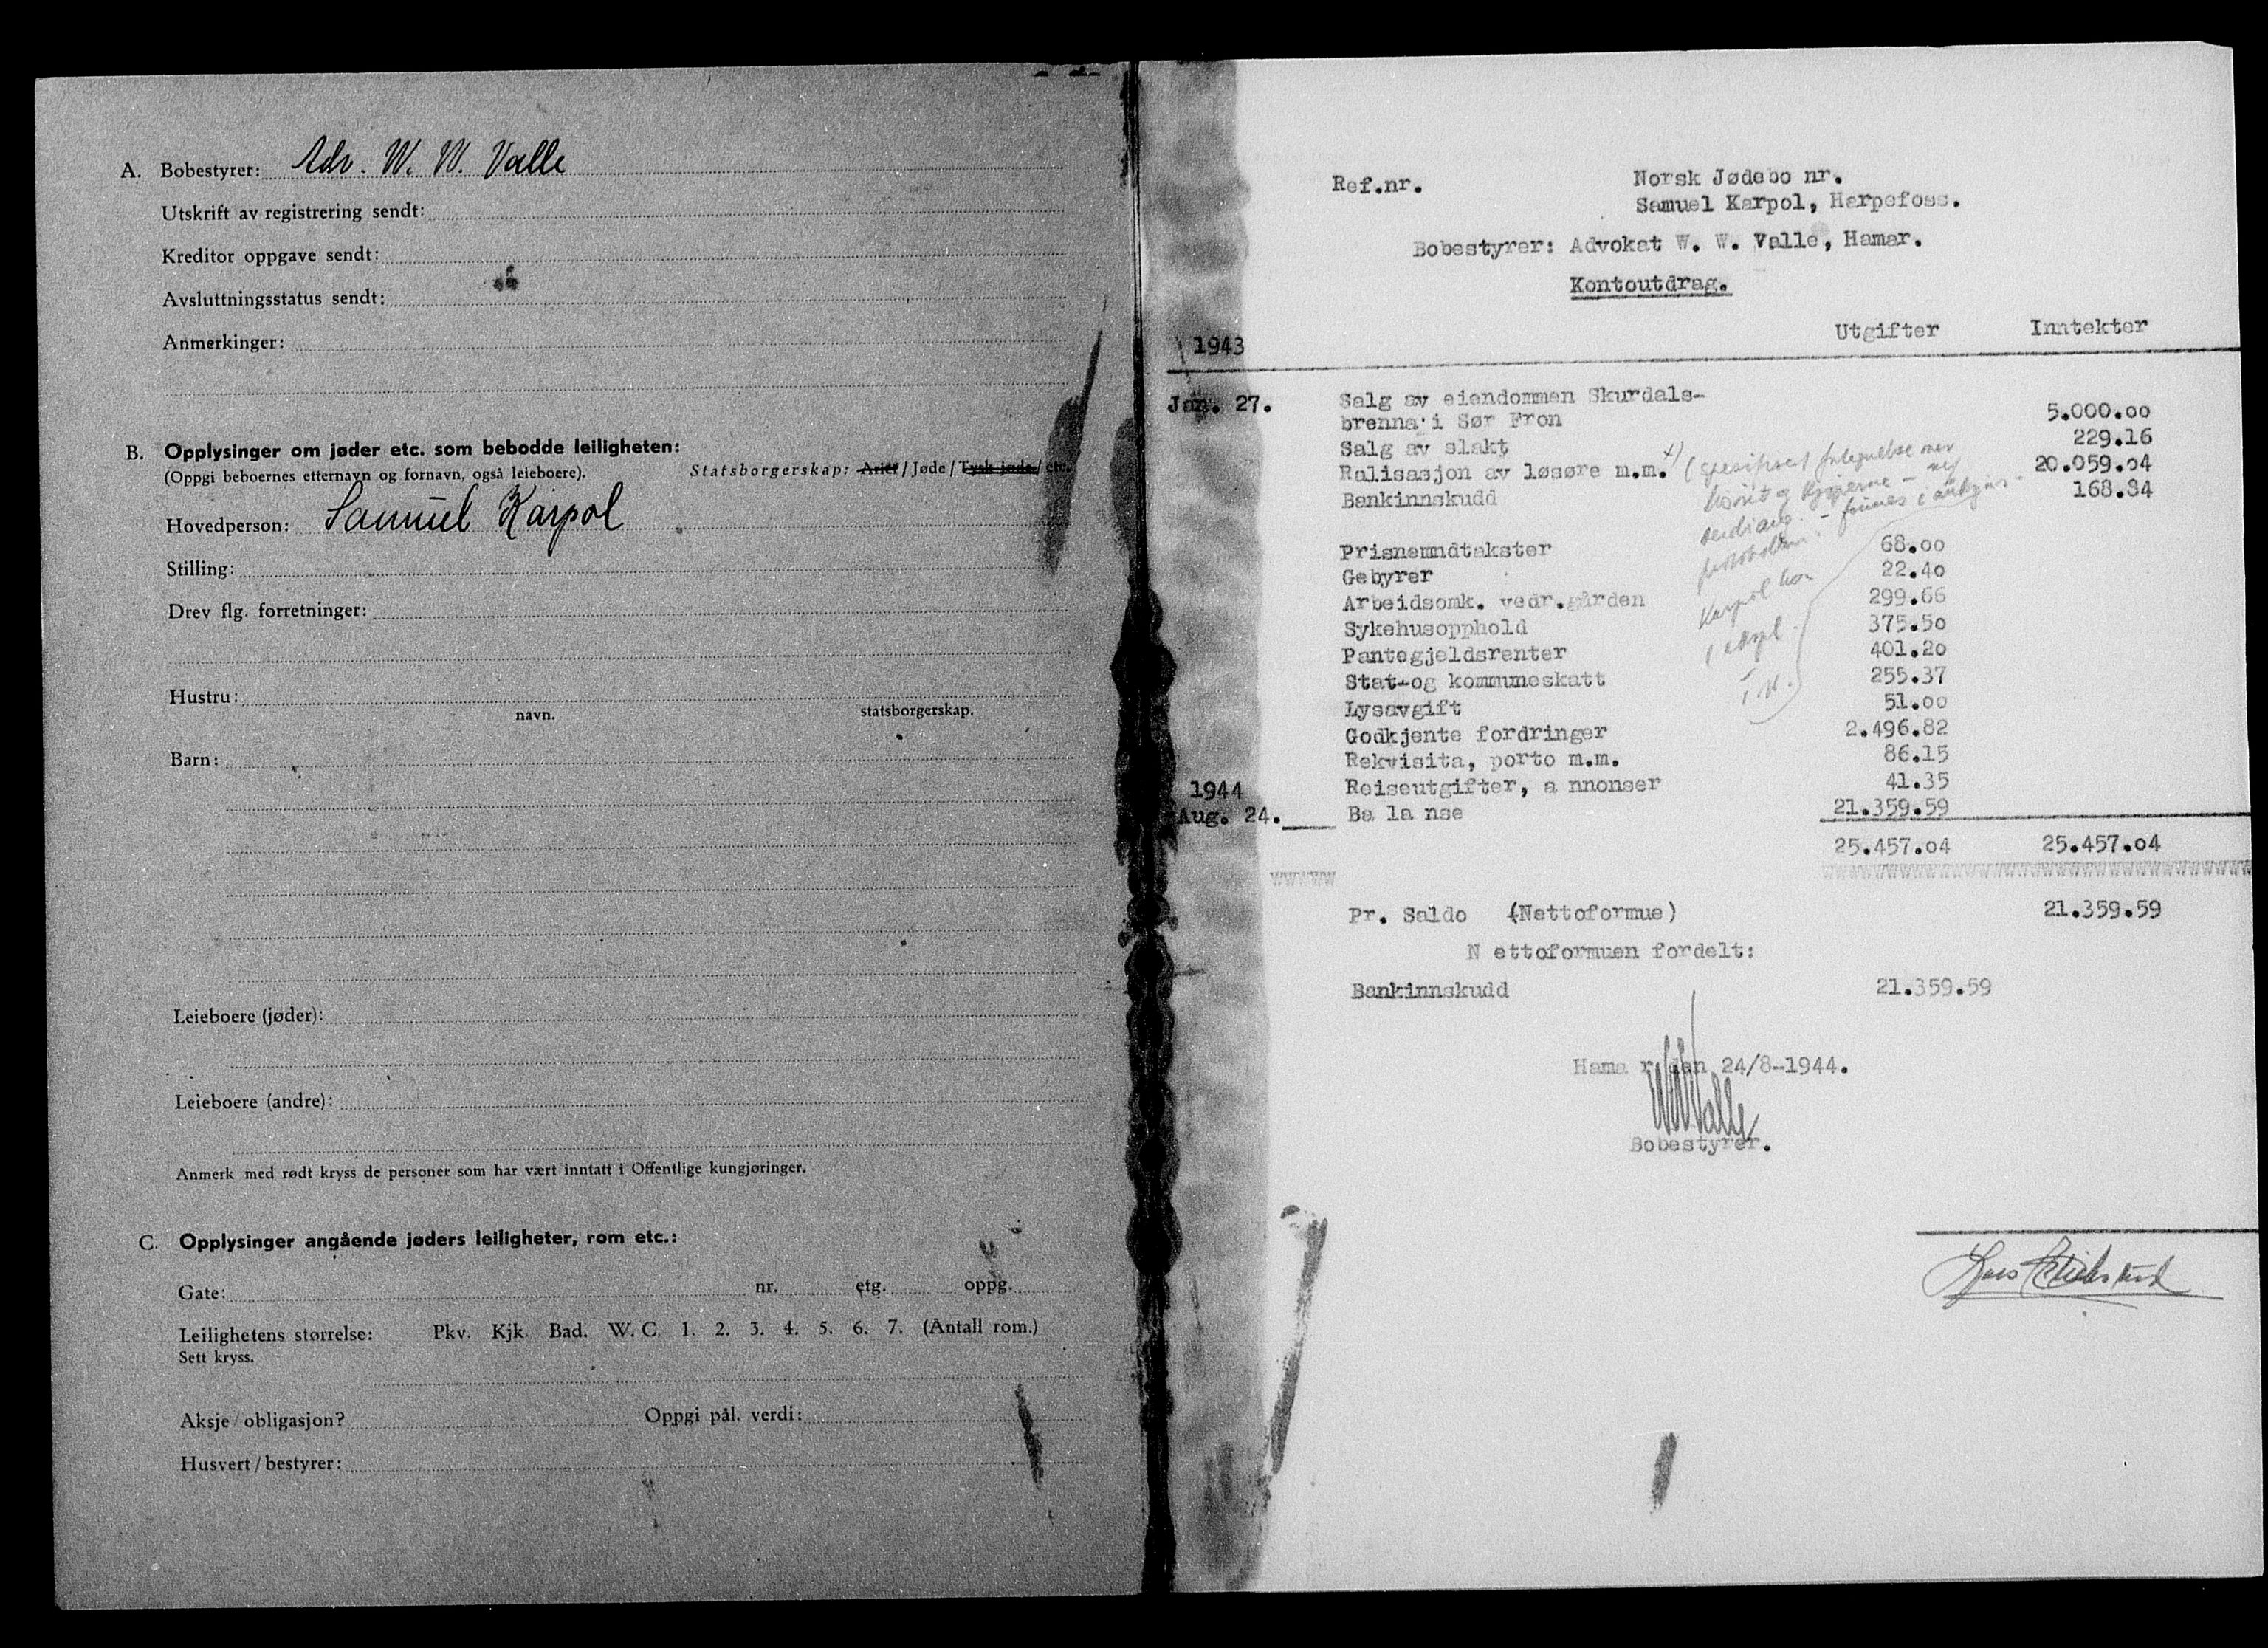 A. Bobestyrer: Adv. W. W. Valle
Utskrift av registrering sendt:
Kreditor oppgave sendt:
Avsluttningsstatus sendt:
Anmerkinger:
B. Opplysinger om jøder etc. som bebodde leiligheten:
(Oppgi beboernes etternavn og fornavn, også leieboere). Statsborgerskap: Arier / Jøde / Tysk jøde / etc.
Hovedperson: Samuel Karpol
Stilling:
Drev flg. forretninger:
Hustru:
navn. statsborgerskap.
Barn:
Leieboere (jøder):
Leieboere (andre):
Anmerk med rødt kryss de personer som har vært inntatt i Offentlige kungjøringer.
C. Opplysinger angående jøders leiligheter, rom etc.:
Gate: nr. etg. oppg.
Leilighetens størrelse: Pkv. Kjk. Bad. W.C. 1. 2. 3. 4. 5. 6. 7. (Antall rom.)
Sett kryss.
Aksje / obligasjon? Oppgi pål. verdi:
Husvert / bestyrer:
Ref.nr. Norsk Jødebo nr.
Samuel Karpol, Harpefoss.
Bobestyrer: Advokat W. W. Valle, Hamar.
Kontoutdrag.
1943 Utgifter Inntekter
Jan. 27. Salg av eiendommen Skurdals-
brenna i Sør Fron 5.000.00
Salg av slakt 229.16
Ralisasjon av løsøre m.m. x) 20.059.04
Bankinnskudd 168.84
Prisnemndtakster 68.00
Gebyrer 22.40
Arbeidsomk. vedr. gården 299.66
Sykehusopphold 375.50
Pantegjeldsrenter 401.20
Stat-og kommuneskatt 255.37
Lysavgift 51.00
Godkjente fordringer 2.496.82
Rekvisita, porto m.m. 86.15
1944 Reiseutgifter, a nnonser 41.35
Aug. 24. Ba la nse 21.359.59
25.457.04 25.457.04
Pr. Saldo (Nettoformue) 21.359.59
N ettoformuen fordelt:
Bankinnskudd 21.359.59
Hama r den 24/8-1944.
W W Valle
Bobestyrer.